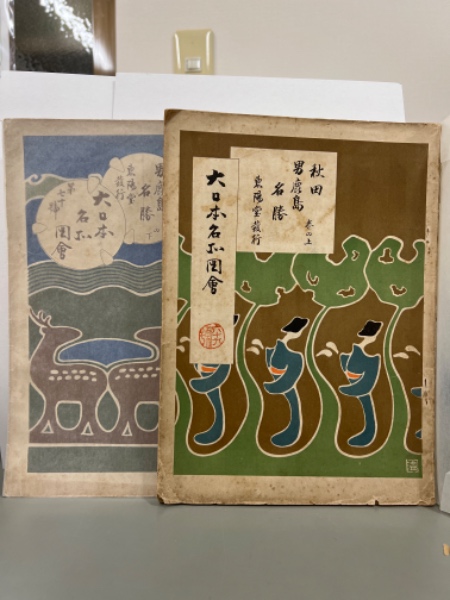 大日本名所圖會
秋田
男鹿島
名勝
巻の上
東陽堂發行
男鹿島
名勝
東陽堂發行
大日本
名所
圖會